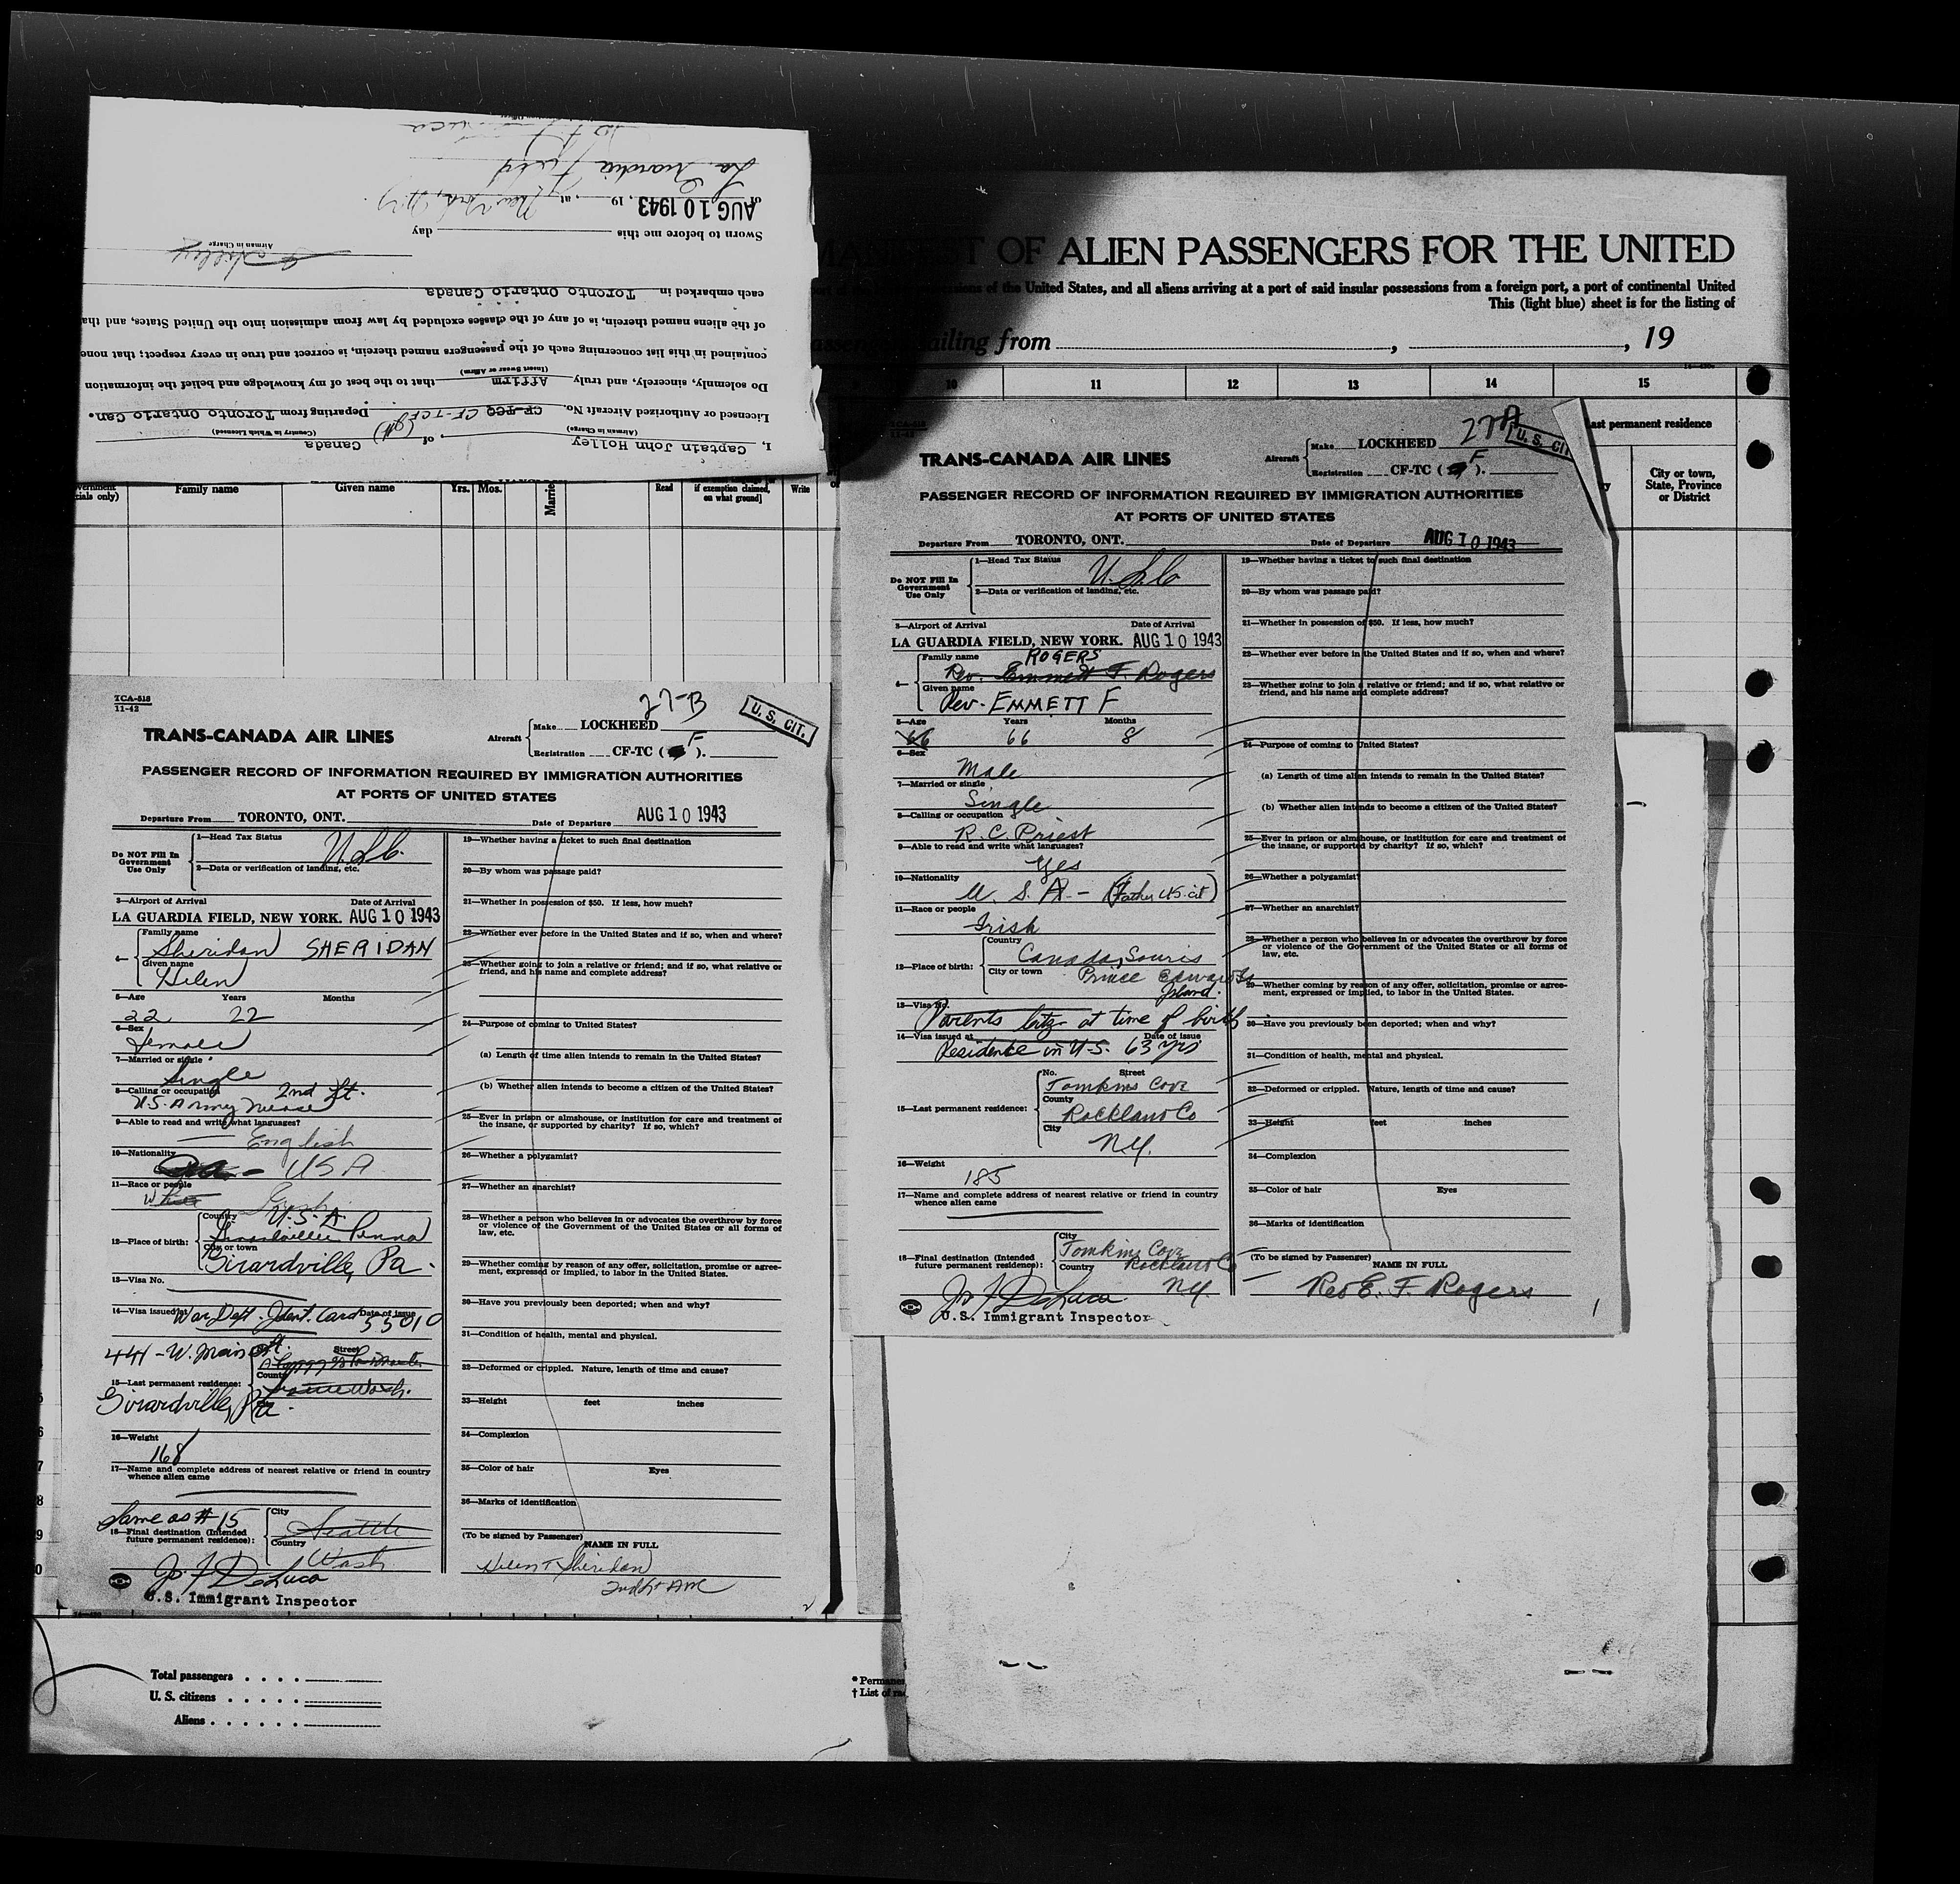 I, Captain John Holley of Canada
(Airman in Charge) (Country in Which Licensed)
Licensed or Authorized Aircraft No. CF-TCF Departing from Toronto Ontario Can.
Do solemnly, sincerely, and truly Affirm that to the best of my knowledge and belief the information
(Insert Swear or Affirm)
contained in this list concerning each of the passengers named therein, is correct and true in every respect; that none
of the aliens named therein, is of any of the classes excluded by law from admission into the United States, and tha
each embarked in Toronto Ontario Canada
Airman in Charge
Sworn to before me this day
of AUG 10 1943, 19 , at New York, N.Y.
La Guardia Field
T OF ALIEN PASSENGERS FOR THE UNITED
of the United States, and all aliens arriving at a port of said insular possessions from a foreign port, a port of continental United
This (light blue) sheet is for the listing of
ailing from , , 19
10 11 12 13 14 15
ast permanent residence
City or town,
State, Province
or District
Family name Given name Yrs. Mos. Married Read if exemption claimed, on what ground] Write
TCA-518
11-42
27-B
U. S. CIT.
TRANS-CANADA AIR LINES
Aircraft Make LOCKHEED
Registration CF-TC ( F ).
PASSENGER RECORD OF INFORMATION REQUIRED BY IMMIGRATION AUTHORITIES
AT PORTS OF UNITED STATES
Departure From TORONTO, ONT. Date of Departure AUG 10 1943
Do NOT Fill In
Government
Use Only
1—Head Tax Status U.S.C.
2—Data or verification of landing, etc.
3—Airport of Arrival Date of Arrival
LA GUARDIA FIELD, NEW YORK. AUG 10 1943
4— Family name Sheridan SHERIDAN
Given name Helen
5—Age Years Months
22 22
6—Sex
Female
7—Married or single
Single
8—Calling or occupation 2nd Lt.
U.S. Army Nurse
9—Able to read and write what languages?
English
10—Nationality
USA
11—Race or people
White
12—Place of birth: Country U.S.A.
Penna
City or town Girardville, Pa.
13—Visa No.
14—Visa issued at War Dept. Ident. Card Date of issue 55010
441 - W. Main St.
Street
County
15—Last permanent residence:
Girardville, Pa.
16—Weight
168
17—Name and complete address of nearest relative or friend in country
whence alien came
Same as #15
18—Final destination (Intended
future permanent residence): City Seattle
Country Wash
Jos F DeLuca
U.S. Immigrant Inspector
19—Whether having a ticket to such final destination
20—By whom was passage paid?
21—Whether in possession of $50. If less, how much?
22—Whether ever before in the United States and if so, when and where?
23—Whether going to join a relative or friend; and if so, what relative or
friend, and his name and complete address?
24—Purpose of coming to United States?
(a) Length of time alien intends to remain in the United States?
(b) Whether alien intends to become a citizen of the United States?
25—Ever in prison or almshouse, or institution for care and treatment of
the insane, or supported by charity? If so, which?
26—Whether a polygamist?
27—Whether an anarchist?
28—Whether a person who believes in or advocates the overthrow by force
or violence of the Government of the United States or all forms of
law, etc.
29—Whether coming by reason of any offer, solicitation, promise or agree-
ment, expressed or implied, to labor in the United States.
30—Have you previously been deported; when and why?
31—Condition of health, mental and physical.
32—Deformed or crippled. Nature, length of time and cause?
33—Height feet inches
34—Complexion
35—Color of hair Eyes
36—Marks of identification
(To be signed by Passenger)
NAME IN FULL
Helen T Sheridan
2nd Lt ANC
2
Total passengers
U. S. citizens
Aliens
* Permane
† List of ra
27A
U. S. CIT
TRANS-CANADA AIR LINES
Aircraft Make LOCKHEED
Registration CF-TC ( F ).
PASSENGER RECORD OF INFORMATION REQUIRED BY IMMIGRATION AUTHORITIES
AT PORTS OF UNITED STATES
Departure From TORONTO, ONT. Date of Departure AUG 10 1943
Do NOT Fill In
Government
Use Only
1—Head Tax Status U.S.C.
2—Data or verification of landing, etc.
3—Airport of Arrival Date of Arrival
LA GUARDIA FIELD, NEW YORK. AUG 10 1943
4— Family name ROGERS
Rev. Emmett F. Rogers
Given name
Rev. EMMETT F
5—Age Years Months
66 66 8
6—Sex
Male
7—Married or single
Single
8—Calling or occupation
R.C. Priest
9—Able to read and write what languages?
Yes
10—Nationality
U. S. A. - (Father US. cit)
11—Race or people
Irish
12—Place of birth: Country Canada, Souris
City or town Prince Edward
Island.
13—Visa No.
Parents Citz at time of birth
14—Visa issued at Date of issue
Residence in U.S. 63 yrs
15—Last permanent residence: No. Street
Tomkins Cove
County
Rockland Co
City
N.Y.
16—Weight
185
17—Name and complete address of nearest relative or friend in country
whence alien came
18—Final destination (Intended
future permanent residence): City Tomkins Cove
Country Rockland Co
N.Y.
Jos F DeLuca
U.S. Immigrant Inspector
19—Whether having a ticket to such final destination
20—By whom was passage paid?
21—Whether in possession of $50. If less, how much?
22—Whether ever before in the United States and if so, when and where?
23—Whether going to join a relative or friend; and if so, what relative or
friend, and his name and complete address?
24—Purpose of coming to United States?
(a) Length of time alien intends to remain in the United States?
(b) Whether alien intends to become a citizen of the United States?
25—Ever in prison or almshouse, or institution for care and treatment of
the insane, or supported by charity? If so, which?
26—Whether a polygamist?
27—Whether an anarchist?
28—Whether a person who believes in or advocates the overthrow by force
or violence of the Government of the United States or all forms of
law, etc.
29—Whether coming by reason of any offer, solicitation, promise or agree-
ment, expressed or implied, to labor in the United States.
30—Have you previously been deported; when and why?
31—Condition of health, mental and physical.
32—Deformed or crippled. Nature, length of time and cause?
33—Height feet inches
34—Complexion
35—Color of hair Eyes
36—Marks of identification
(To be signed by Passenger)
NAME IN FULL
Rev E. F. Rogers
1